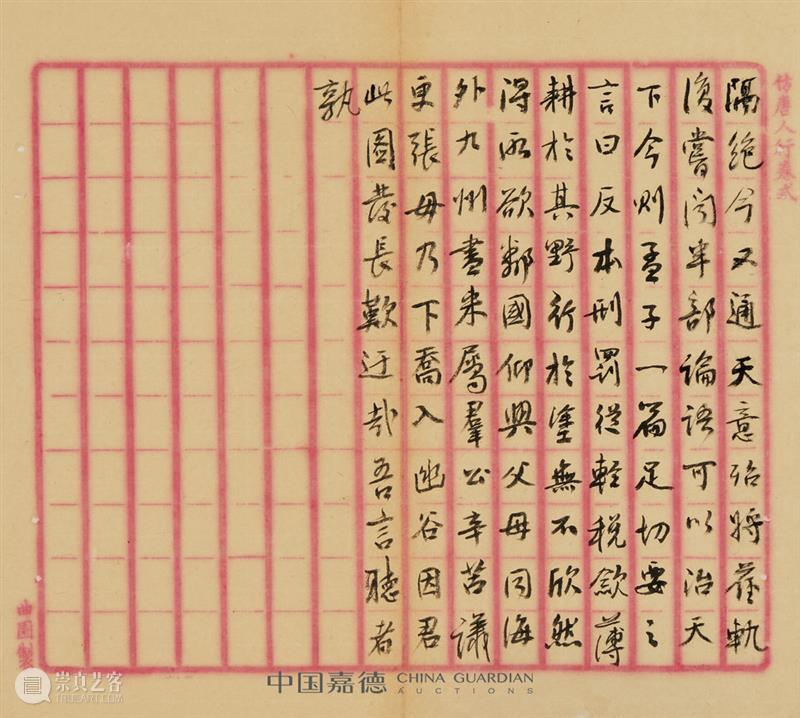 仿唐人行卷式
隔絶今又通天意殆將舊軌
復嘗聞半部論語可以治天
下今則孟子一篇足切要之
言曰反本刑罰從輕稅斂薄
耕於其野行於塗無不欣然
得所欲鄰國仰與父母同海
外九州盡來屬羣公辛苦議
更張毋乃下喬入幽谷因君
此圖發長歎迂哉吾言聽者
孰
曲園製
崇真艺客
TRUEART.COM
中国嘉德 CHINA GUARDIAN
AUCTIONS